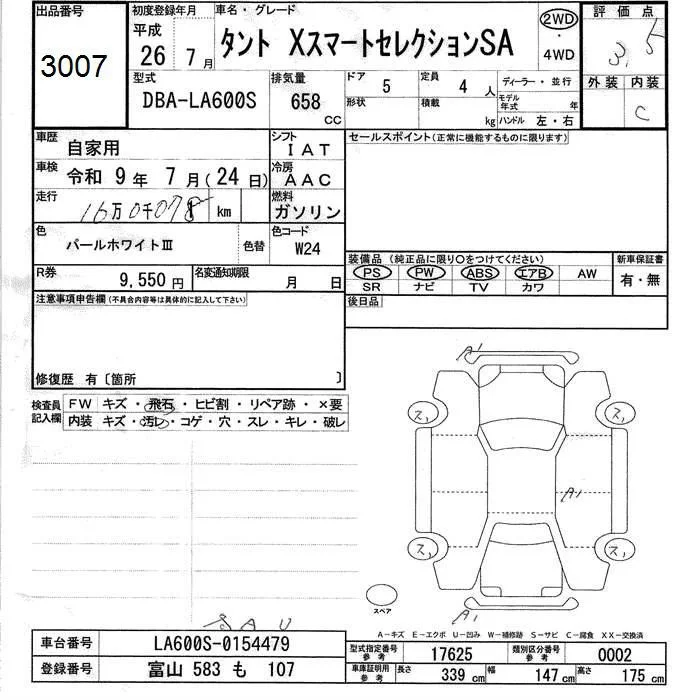 出品番号 初度登録年月 車名・グレード 評価点
3007 平成 26年 7月 タント XスマートセレクションSA 2WD・4WD 3.5
型式 排気量 ドア 5 定員 4人 ディーラー・並行 外装 内装
DBA-LA600S 658 CC 形状 積載 kg モデル年式 年 ハンドル 左・右 C
車歴 自家用 シフト IAT セールスポイント(正常に機能するものに限ります)
車検 令和 9年 7月(24日) 冷房 AAC
走行 16万0千078 km 燃料 ガソリン
色 パールホワイトⅢ 色替 色コード W24
装備品(純正品に限り○をつけてください) 新車保証書
R券 9,550円 名変通知期限 月 日 PS PW ABS エアB AW 有・無
SR ナビ TV カワ
注意事項申告欄(不具合内容等は具体的に記入して下さい) 後日品
修復歴 有〔箇所 〕
検査員記入欄 FW キズ・飛石・ヒビ割・リペア跡・×要
内装 キズ・汚レ・コゲ・穴・スレ・キレ・破レ
A1
ス1 ス1
A1
ス1 ス1
スペア
A1
SAU
A-キズ E-エクボ U-凹み W-補修跡 S-サビ C-腐食 XX-交換済
車台番号 LA600S-0154479 型式指定番号 参考 17625 類別区分番号 参考 0002
登録番号 富山 583 も 107 車庫証明用 参考 長さ 339 cm 幅 147 cm 高さ 175 cm